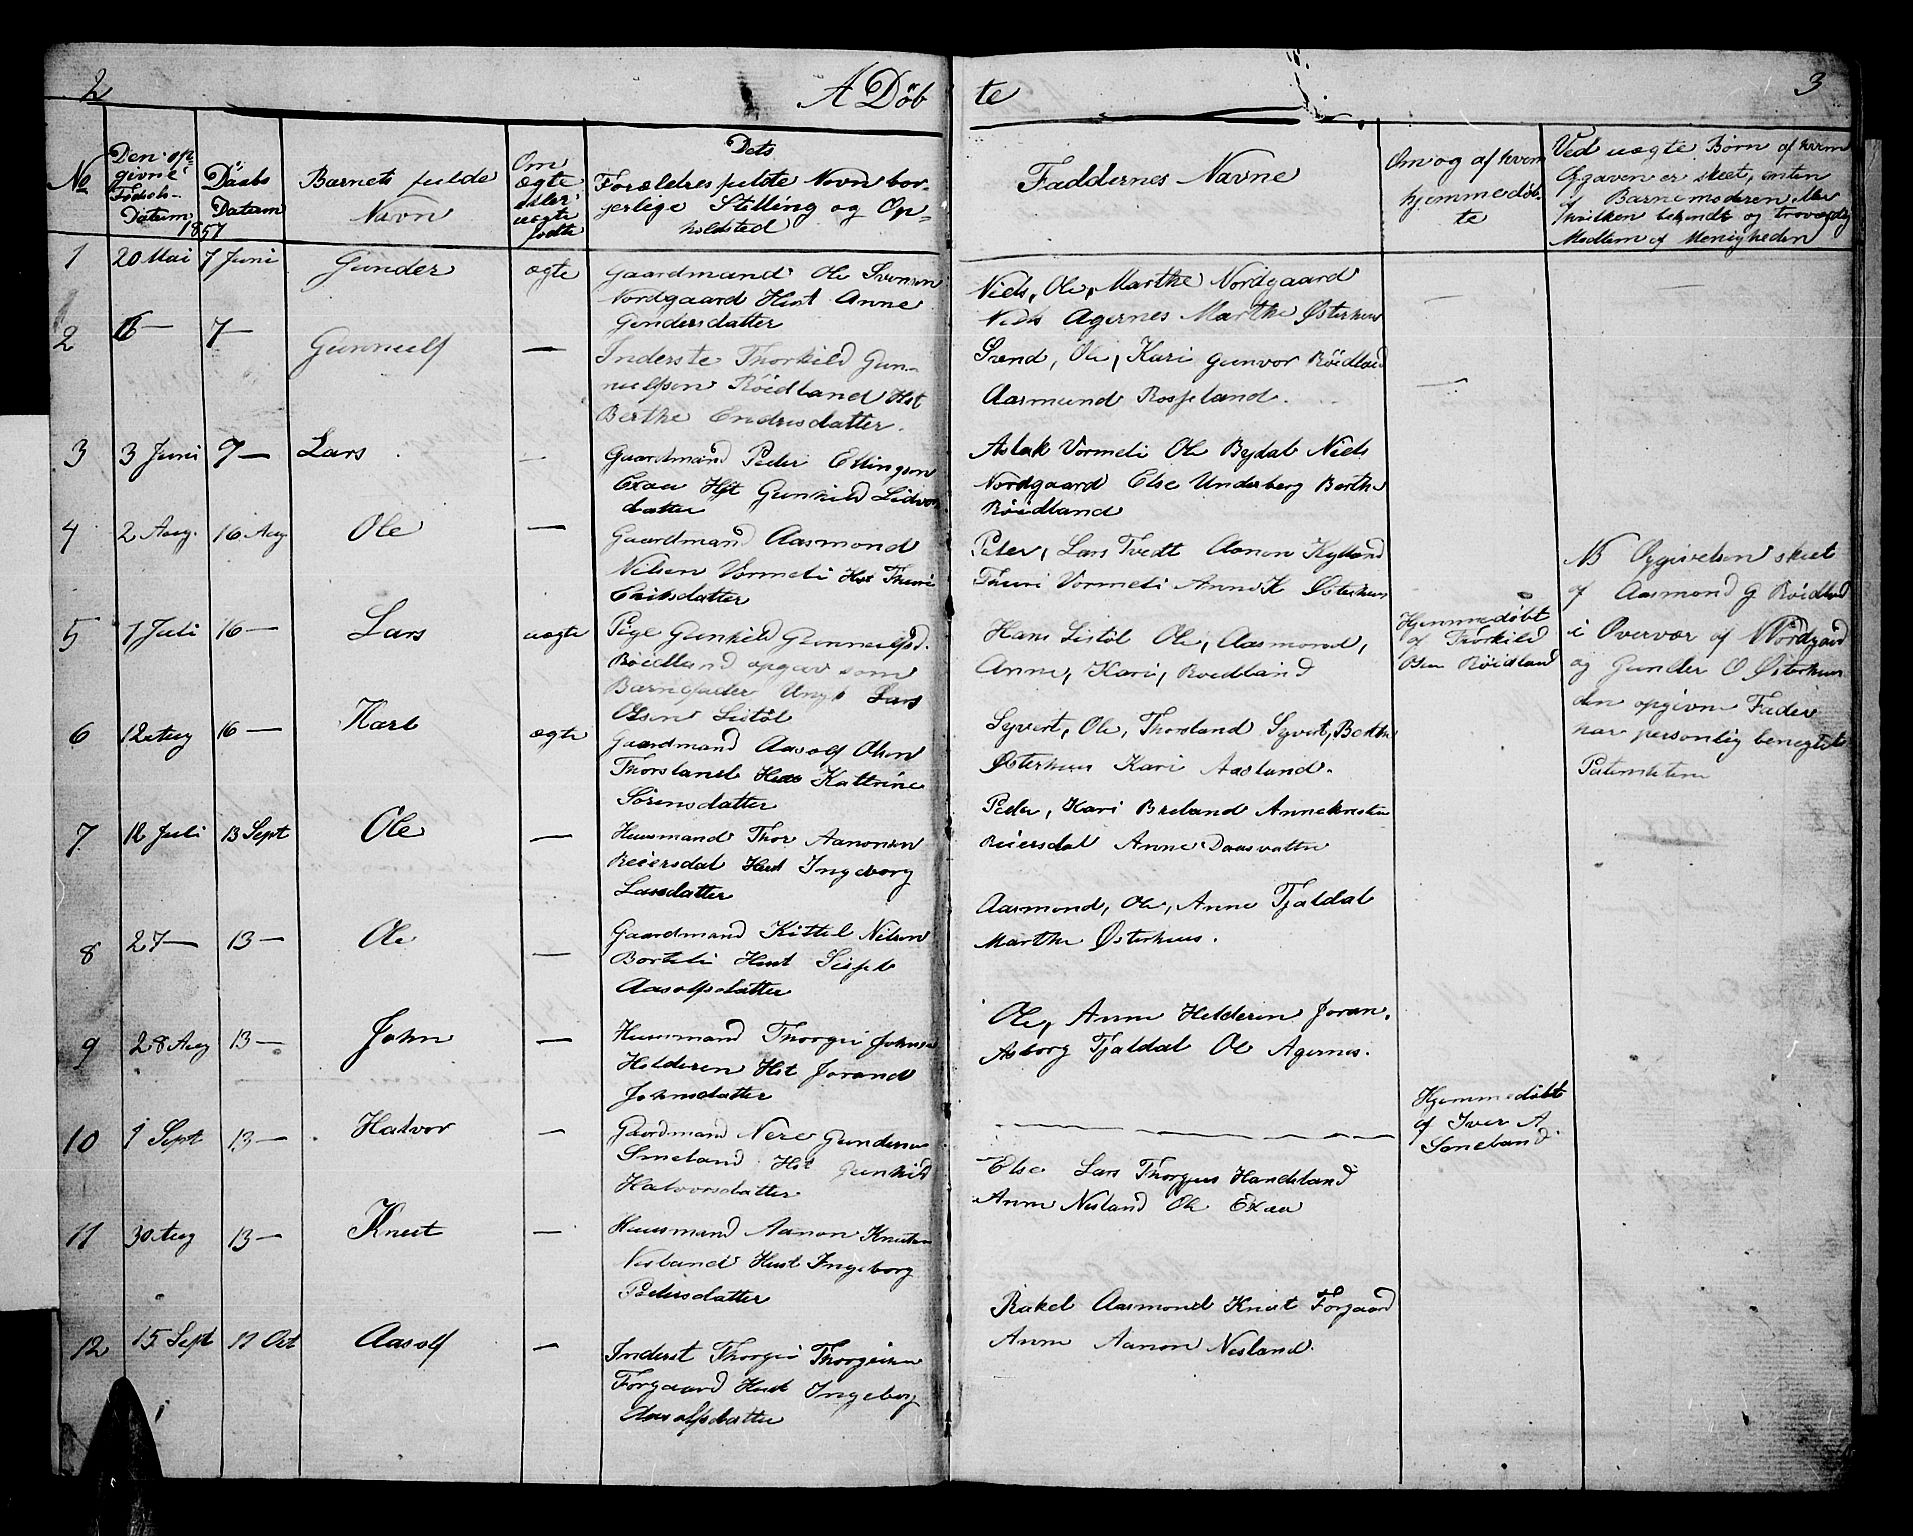 2
A Döb
te
3
No
Den op-
givne
Födsels-
Datum
Daabs
Datum
1857
Barnets fulde
Navn
Om
ægte
eller
uægte
födte
Dets
Forældres fulde Navn bor-
gerlige Stilling og Op-
holdsted
Faddernes Navne
Om og af hvem
hjemmedöb-
te
Ved uægte Börn af hvem
Opgaven er skeet, enten
af Barnemoderen eller
hvilken bekjendt og troværdig
Medlem af Menigheden
1 20 Mai 7 Juni Gunder ægte Gaardmand Ole Svensen
Nordgaard Hust Anne
Gundersdatter
Niels, Ole, Marthe Nordgaard
Niels Agernes Marthe Østerhuus
—
—
2 16 — 7 — Gunneulf — Inderste Thorkild Gun-
neulfsen Röidland Hst
Berthe Endresdatter.
Svend, Ole, Kari Gunvor Röidland
Aasmund Rosseland.
—
3 3 Juni 7 — Lars — Gaardmand Peder Ellingsen
Exaa Hst Gunhild Lidvors
datter
Aslak Vormeli Ole Bydal Niels
Nordgaard Else Underberg Berthe
Röidland
4 2 Aug. 16 Aug Ole — Gaardmand Aasmond
Nilsen Vormeli Hst Thuri
Eriksdatter
Peter, Lars Tvedt Aanon Kylland
Thuri Vormeli Anne K Østerhuus
5 7 Juli 16 — Lars uægte Pige Gunhild Gunneulfsd.
Röidland opgav som
Barnefader Ungk Lars
Olsen Listöl
Hans Listöl Ole, Aasmond,
Anne, Kari, Roidland
Hjemmedöbt
af Thorkild
Röidland
NB Opgivelsen skeet
af Aasmond G Röidland
i Overvær af N Nordgaard
og Gunder O Østerhuus
den opgivne Fader
har personlig benegtet
Paterniteten
6 12 Aug 16 — Karl ægte Gaardmand Aasolf Olsen
Thorsland Hust Kattrine
Sörensdatter
Syvert, Ole, Thorsland Syvert, Berthe
Østerhuus Kari Aasland.
7. 12 Juli 13 Sept Ole — Huusmand Thor Aanonsen
Reiersdal Hust Ingeborg
Larsdatter
Peder, Kari Breland Annekirsten
Reiersdal Anne Daasvatten
8 27 — 13 — Ole — Gaardmand Kittel Nilsen
Borteli Hust Sisset
Aasolfsdatter
Aasmond, Ole, Anne Tjaldal
Marthe Østerhuus.
9 28 Aug 13 — John — Huusmand Thorgri Johnsen
Helderen Hst Jorand
Johnsdatter
Ole, Anne Helderen Joran,
Asborg Tjaldal Ole Agernes.
10 1 Sept 13 — Halvor — Gaardmand Nere Gundersen
Smeland Hst Gunhild
Halvorsdatter
Hjemmedöbt
af Iver A
11 30 Aug 13 — Knut — Huusmand Aanon Knutsen
Nesland Hust Ingeborg
Pedersdatter
Else Lars Thorgrus Handeland
Anne Nesland Ole Exaa
12 15 Sept 11 Oct Aasolf — Inderst Thorgri Thorgrisen
Forgaard Hust Ingeborg
Aasolfsdatter
Rakel Aasmond Knut Forgaard
Anne Aanon Nesland.